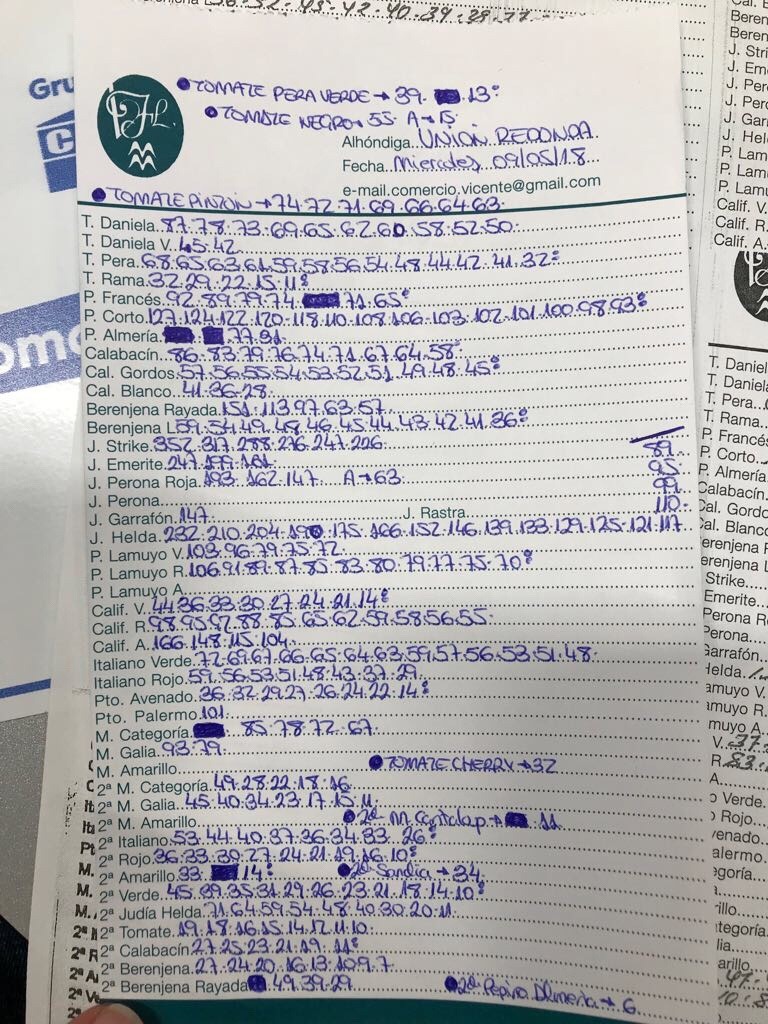 ● TOMATE PERA VERDE → 39. 13º
● TOMATE NEGRO → 55 A → 15
Alhóndiga UNION REDONDA
Fecha Miercoles 09/05/18
e-mail.comercio.vicente@gmail.com
● TOMATE PINTON → 74.72.71.69.66.64.63.
T. Daniela. 87.78.73.69.65.62.60.58.52.50
T. Daniela V. 45.42
T. Pera. 68.65.63.61.59.58.56.54.48.44.42.41.32º
T. Rama. 32.29.22.15.11º
P. Francés. 92.89.79.74. 71.65º
P. Corto. 127.124.122.120.118.110.108.106.103.102.101.100.98.93º
P. Almería.
Calabacín. 86.83.79.76.74.71.67.64.58º
Cal. Gordos. 57.56.55.54.53.52.51.49.48.45º
Cal. Blanco. 41.36.28
Berenjena Rayada. 151.113.97.63.57
Berenjena L. 59.54.49.48.46.45.44.43.42.41.36º
J. Strike. 352.317.288.276.247.226
89
J. Emerite. 247. 181
95
J. Perona Roja. 193.162.147. A → 63
99
J. Perona
110
J. Garrafón. 147 J. Rastra
J. Helda. 232.210.204.190.175.166.152.146.139.133.129.125.121.117
P. Lamuyo V. 103.96.79.75.72
P. Lamuyo R. 106.91.89.87.85.83.80.79.77.75.70º
P. Lamuyo A.
Calif. V. 44.36.33.30.27.24.21.14º
Calif. R. 98.95.92.88.85.65.62.59.58.56.55
Calif. A. 166.148.115.104
Italiano Verde. 72.69.67.66.65.64.63.59.57.56.53.51.48
Italiano Rojo. 59.56.53.51.48.43.37.29
Pto. Avenado. 36.32.29.27.26.24.22.14º
Pto. Palermo. 101
M. Categoría. 85.78.72.67
M. Galia. 93.79
M. Amarillo ● TOMATE CHERRY → 32
2ª M. Categoría. 49.28.22.18.16
2ª M. Galia. 45.40.34.23.17.15.11
2ª M. Amarillo ● 2ª M. Cantalup → 11
2ª Italiano. 53.44.40.37.36.34.33.26º
2ª Rojo. 36.33.30.27.24.21.19.16.10º
2ª Amarillo. 33 14º ● 2ª Sandia → 34
2ª Verde. 45.39.35.31.29.26.23.21.18.14.10º
2ª Judía Helda. 71.64.59.54.48.40.30.20.11
2ª Tomate. 19.18.16.15.14.12.11.10
2ª Calabacín. 27.25.23.21.19.11º
2ª Berenjena. 27.24.20.16.13.10.9.7
2ª Berenjena Rayada 49.39.29 ● 2ª Pepino Almeria → 6